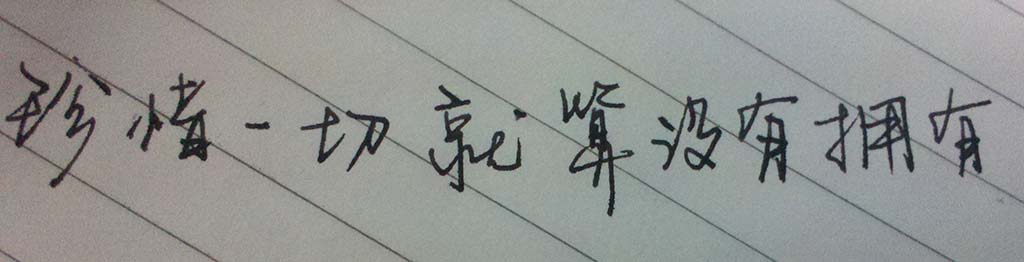 珍惜一切就算没有拥有